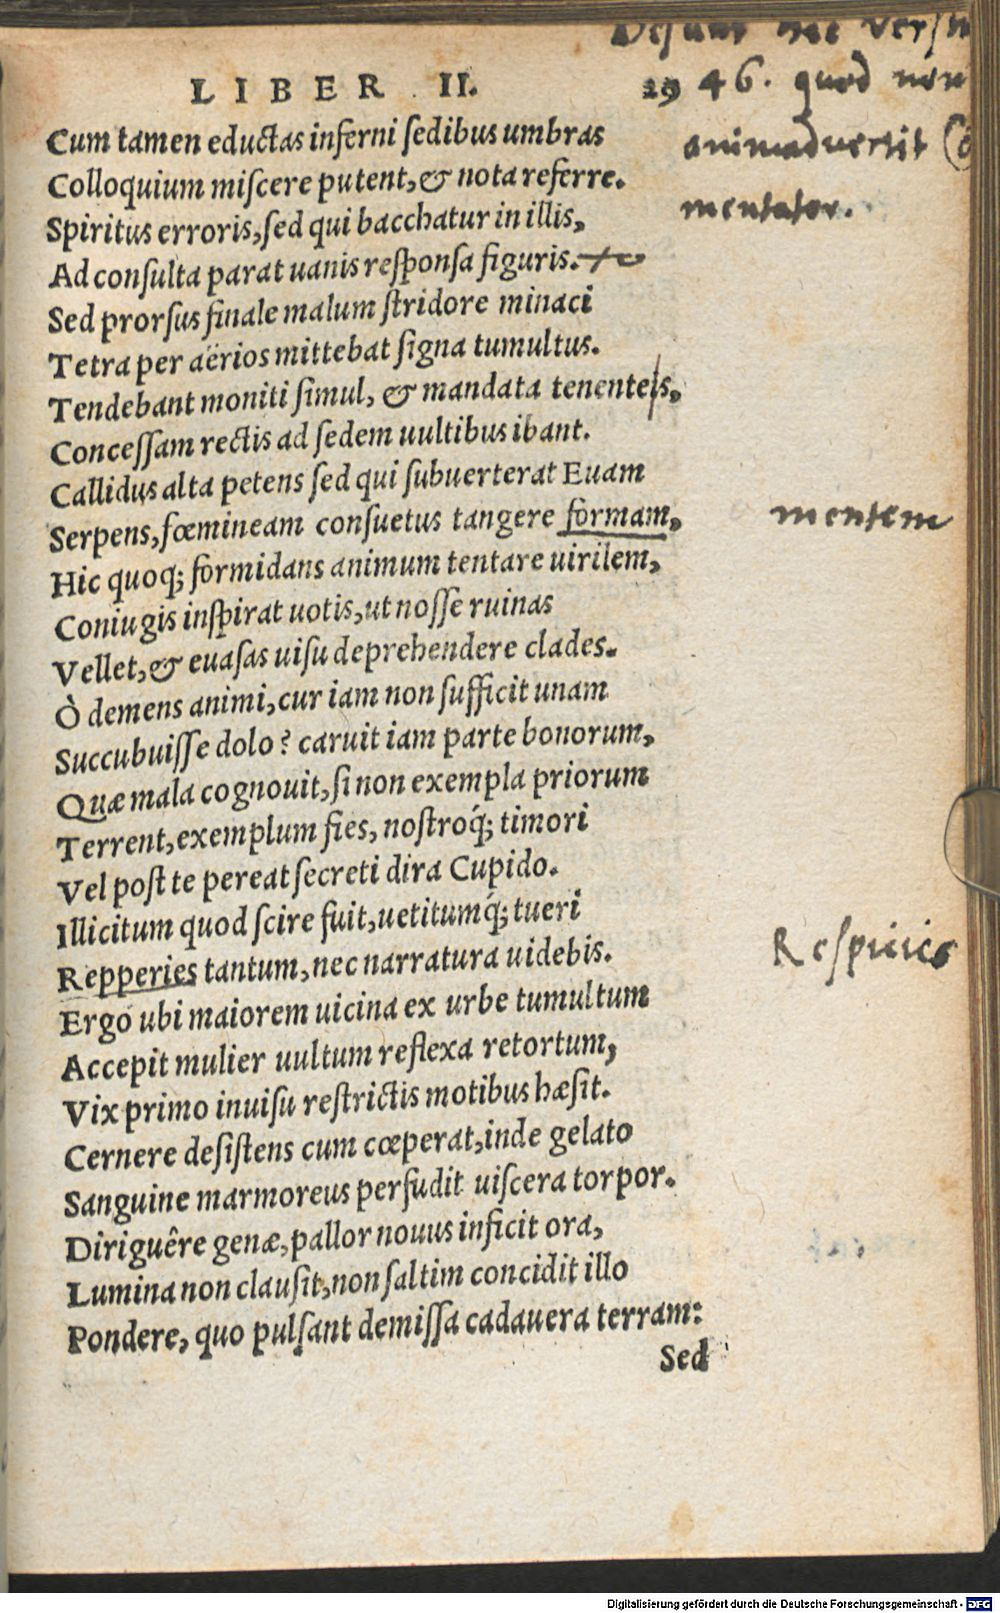 Desunt hic versu
LIBER II. 29 46. quod non
animadvertit Cō
mentator.
Cum tamen eductas inferni ſedibus umbras
Colloquium miſcere putent, & nota referre.
Spiritus erroris, ſed qui bacchatur in illis,
Ad conſulta parat uanis reſponſa figuris.
Sed prorſus finale malum ſtridore minaci
Tetra per aërios mittebat ſigna tumultus.
Tendebant moniti ſimul, & mandata tenenteis,
Conceſſam rectis ad ſedem uultibus ibant.
Callidus alta petens ſed qui ſubuerterat Euam
Serpens, fœmineam conſuetus tangere formam, mentem
Hic quoq; formidans animum tentare uirilem,
Coniugis inſpirat uotis, ut noſſe ruinas
Vellet, & euaſas uiſu deprehendere clades.
Ò demens animi, cur iam non ſufficit unam
Succubuiſſe dolo? caruit iam parte bonorum,
Quæ mala cognouit, ſi non exempla priorum
Terrent, exemplum fies, noſtroq́; timori
Vel poſt te pereat ſecreti dira Cupido.
Illicitum quod ſcire fuit, uetitumq́; tueri
Repperies tantum, nec narratura uidebis. Respicies
Ergo ubi maiorem uicina ex urbe tumultum
Accepit mulier uultum reflexa retortum,
Vix primo inuiſu reſtrictis motibus hæſit.
Cernere deſiſtens cum cœperat, inde gelato
Sanguine marmoreus perfudit uiſcera torpor.
Diriguêre genæ, pallor nouus inficit ora,
Lumina non clauſit, non ſaltim concidit illo
Pondere, quo pulſant demiſſa cadauera terram:
Sed
Digitalisierung gefördert durch die Deutsche Forschungsgemeinschaft - DFG